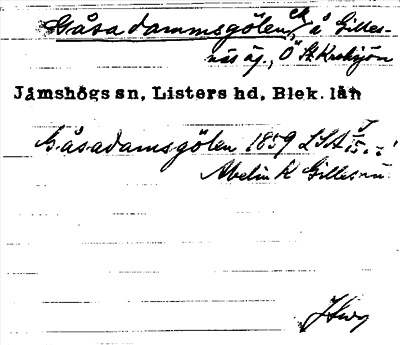 Gåsadammsgölen, å Gilles-
näs äg., Ö St. Kroksjön
Jämshögs sn, Listers hd, Blek. län
Gåsadamsgölen 1859 LSA
Abelin k Gillesnä